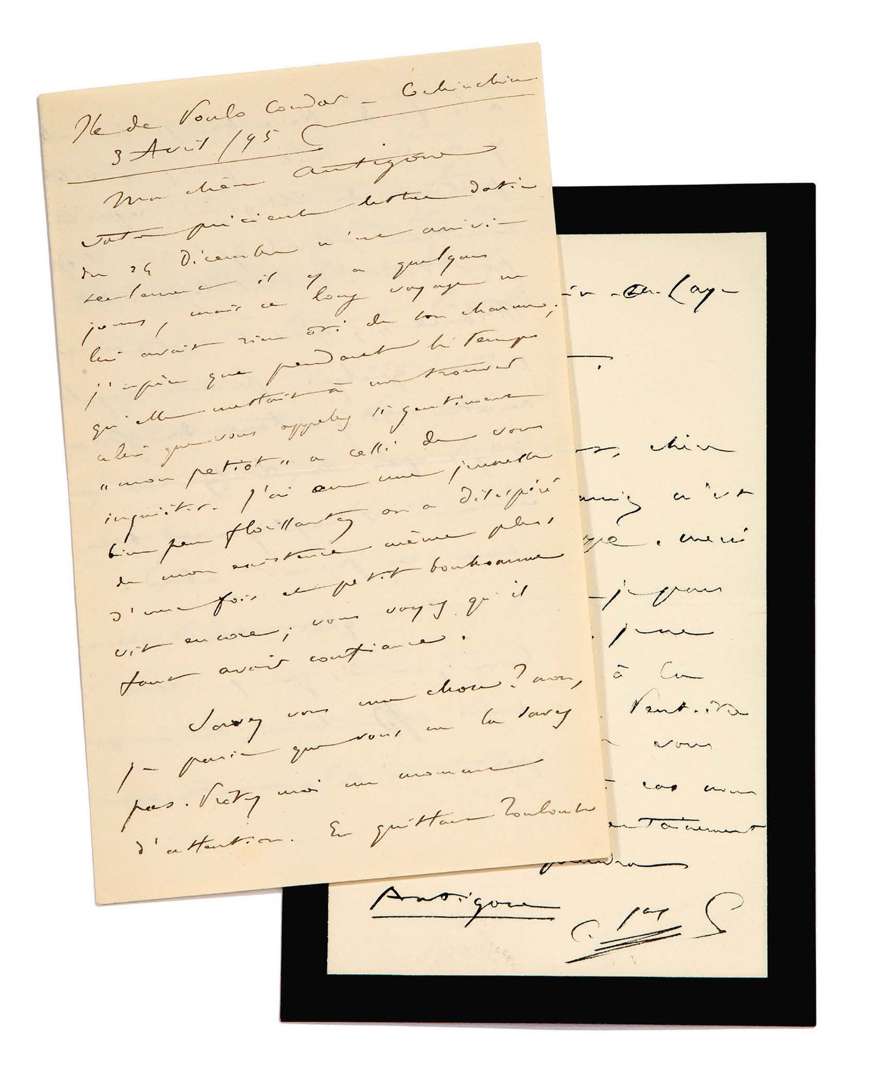 Ile de Poulo Condor – Cochinchine
3 Avril /95
Ma chère Antigone
Votre précieuse lettre datée
du 24 Décembre m'est arrivée
seulement il y a quelques
jours, mais ce long voyage ne
lui avait rien ôté de son charme;
j'espère que pendant le temps
qu'elle mettait à me trouver
celui que vous appelez si gentiment
"mon petiot" a cessé de vous
inquiéter. J'ai eu une jeunesse
bien peu florissante, on a désespéré
de mon existence même plus
d'une fois et le petit bonhomme
vit encore; vous voyez qu'il
faut avoir confiance.
Savez vous une chose? non,
je parie que vous ne la savez
pas. Prêtez moi un moment
d'attention. En quittant Toulouse
en Laye
chère
n'est
merci
je pars
à la
Peut-être
vous
cas nous
Antigone
C. S